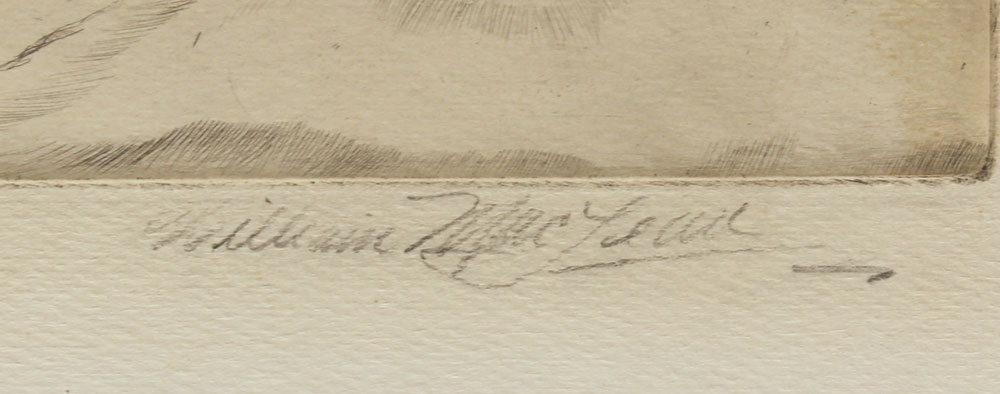 William MacLeod